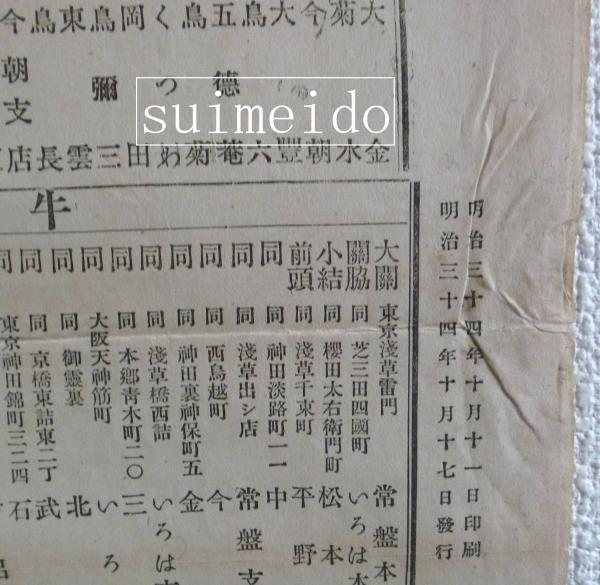 suimeido
明治三十四年十月十一日印刷
明治三十四年十月十七日發行
大 金
菊 水
今 朝
大 豐
鳥 六
五德庵
鳥 菊
くつわ
岡 田
鳥彌三
東 雲
鳥 長
今朝支店
牛
大關 東京淺草雷門 常盤本
關脇 同 芝三田四國町 いろは本
小結 同 櫻田太右衛門町 松本
前頭 同 淺草千束町 平野
同 同 神田淡路町一一 中
同 同 淺草出シ店 常盤支
同 同 西鳥越町 今
同 同 神田裏神保町五 金
同 同 淺草橋西詰 いろは支
同 同 本郷青木町二〇 三
同 大阪天神筋町 いろ
同 同 御靈裏 北
同 同 京橋東詰東二丁 武
同 東京神田錦町三二四 石